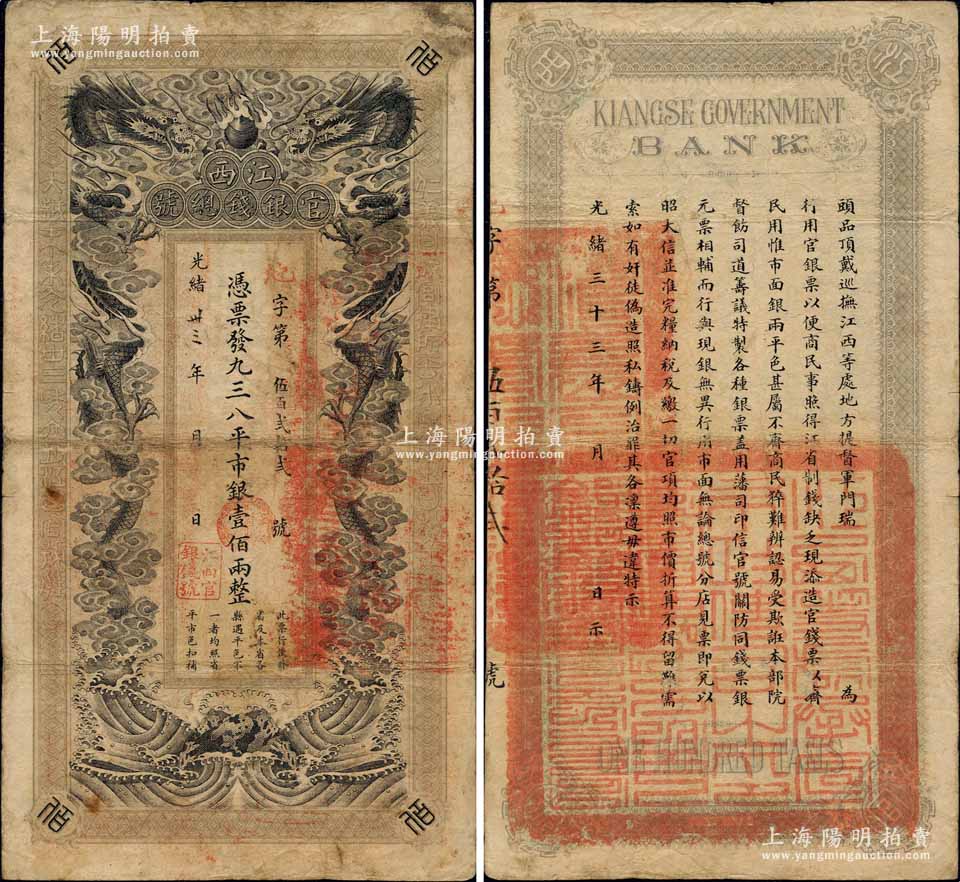 上海陽明拍賣
www.yangmingauction.com
江西
官銀錢總號
字第 伍百貳拾貳 號
憑票發九三八平市銀壹佰兩整
光緒卅三年 月 日
江西官銀錢號
此票行使外
省及本省各
縣遇平色不
一者均照省
平市色扣補
上海陽明拍賣
www.yangmingauction.com
上海陽明拍賣
www.yangmingauction.com
江
西
KIANGSE GOVERNMENT
BANK
頭品頂戴巡撫江西等處地方提督軍門瑞 為
行用官銀票以便商民事照得江省制錢缺乏現添造官錢票以齊
民用惟市面銀兩平色甚屬不齊商民猝難辨認易受欺誑本部院
督飭司道籌議特製各種銀票蓋用藩司印信官號關防同錢票銀
元票相輔而行與現銀無異行用市面無論總號分店見票即兌以
昭大信並准完糧納稅及繳一切官項均照市價折算不得留難需
索如有奸徒偽造照私鑄例治罪其各凜遵毋違特示
光緒三十三年 月 日示
字第 伍百 拾貳 號
ONE HUNDRED TAELS